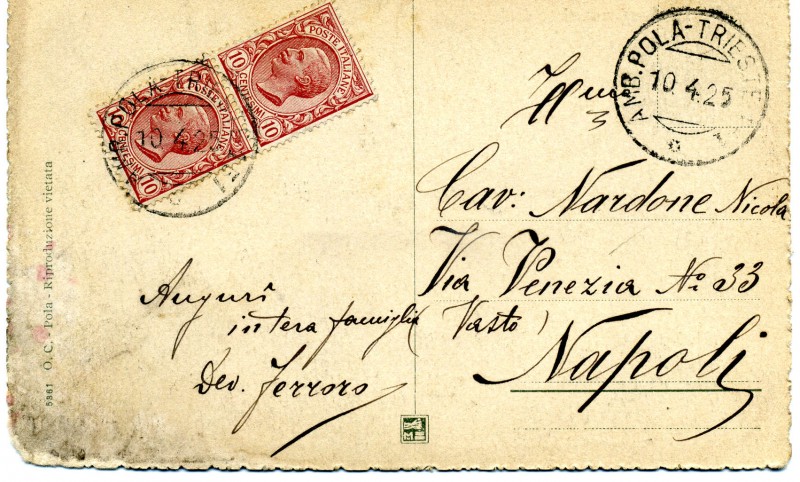 POSTE ITALIANE
10 CENTESIMI 10
POSTE ITALIANE
10 10
AMB. POLA-TRIESTE
10 4.25
AMB. POLA-TRIESTE
10 4.25
1
Cav: Nardone Nicola
Via Venezia No 33
(Vasto)
Napoli
Auguri
intera famiglia
Dev. Ferroro
5361 O. C. - Pola - Riproduzione vietata